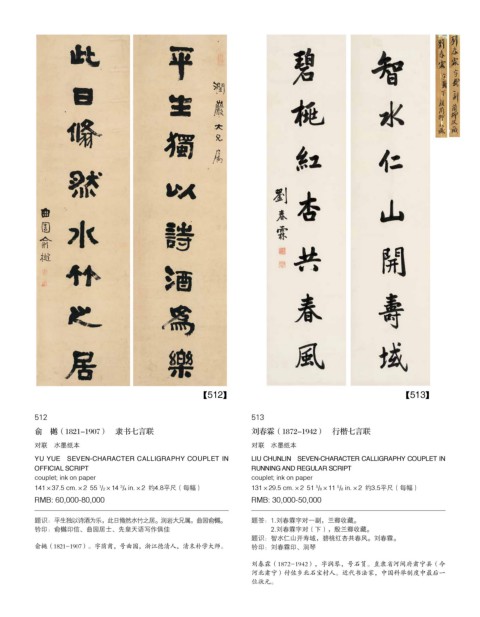 平生獨以詩酒為樂
潤巖大兄屬
此日翛然水竹之居
曲園俞樾
智水仁山開壽域
碧桃紅杏共春風
劉春霖
【512】
【513】
512
俞　樾（1821–1907）　隶书七言联
对联　水墨纸本
YU YUE　SEVEN-CHARACTER CALLIGRAPHY COUPLET IN
OFFICIAL SCRIPT
couplet; ink on paper
141×37.5 cm.×2　55 ×14 in.×2　约4.8平尺（每幅）
RMB: 60,000-80,000
题识：平生独以诗酒为乐，此日翛然水竹之居。润岩大兄属。曲园俞樾。
钤印：俞樾印信、曲园居士、先皇天语写作俱佳
俞樾（1821–1907），字荫甫，号曲园，浙江德清人，清末朴学大师。
513
刘春霖（1872–1942）　行楷七言联
对联　水墨纸本
LIU CHUNLIN　SEVEN-CHARACTER CALLIGRAPHY COUPLET IN
RUNNING AND REGULAR SCRIPT
couplet; ink on paper
131×29.5 cm.×2　51 ×11 in.×2　约3.5平尺（每幅）
RMB: 30,000-50,000
题签：1.刘春霖字对一副，兰卿收藏。
2.刘春霖字对（下），殷兰卿收藏。
题识：智水仁山开寿域，碧桃红杏共春风。刘春霖。
钤印：刘春霖印、润琴
刘春霖（1872–1942），字润琴，号石篔，直隶省河间府肃宁县（今
河北肃宁）付佐乡北石宝村人。近代书法家，中国科举制度中最后一
位状元。